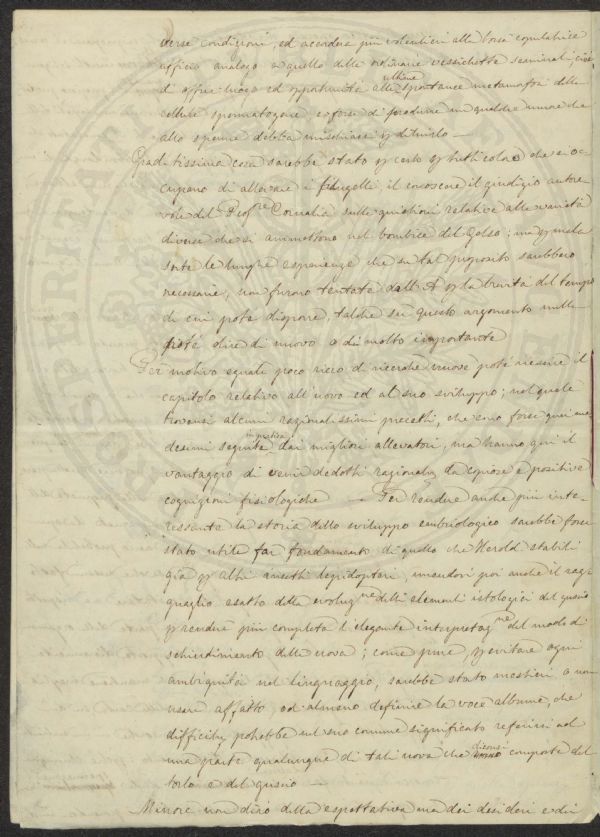 verse condizioni, ed accordersi più volentieri alla borsa copulatrice
ufficio analogo a quello delle ordinarie vescichette seminali, cioè
d'offrir luogo ed opportunità alla ultima spontanea metamorfosi delle
cellule spermatogene, e forse di produrre un qualche umore che
allo sperma debba mischiarsi p diluirlo —
Graditissima cosa sarebbe stato p certo p tutti coloro che si oc-
cupano di allevare i filugelli, il conoscere il giudizio autore-
vole del Profre Cornalia sulle quistioni relative alle varietà
diverse che si ammettono nel bombice del Gelso; ma p mala
sorte le lunghe esperienze che su tal proposito sarebbero
necessarie, non furono tentate dall'A p la brevità del tempo
di cui potè disporre, talchè su questo argomento nulla
potè dire di nuovo o di molto importante
Per motivo eguale poco ricco di ricerche nuove potè riescire il
capitolo relativo all'uovo ed al suo sviluppo; nel quale
trovansi alcuni razionalissimi precetti, che sono forse quei me-
desimi seguiti in pratica dai migliori allevatori, ma hanno quì il
vantaggio di venir dedotti da copiose e positive
cognizioni fisiologiche — Per rendere anche più inte-
ressante la storia dello sviluppo embriologico sarebbe forse
stato utile far fondamento di quello che Herold stabilì
già p altri insetti lepidopteri, unendovi poi anche il rag-
guaglio esatto della evoluzne delli elementi istologici del guscio
p rendere più completa l'elegante interpretazne del modo di
schiudimento delle uova; come pure, p evitare ogni
ambiguità nel linguaggio, sarebbe stato mestieri o non
usare affatto, od almeno definire la voce albume, che
difficilm potrebbe nel suo comune significato referirsi ad
una parte qualunque di tali uova che diconsi composte del
torlo e del guscio —
Minore non dirò della espettativa ma dei desideri e di